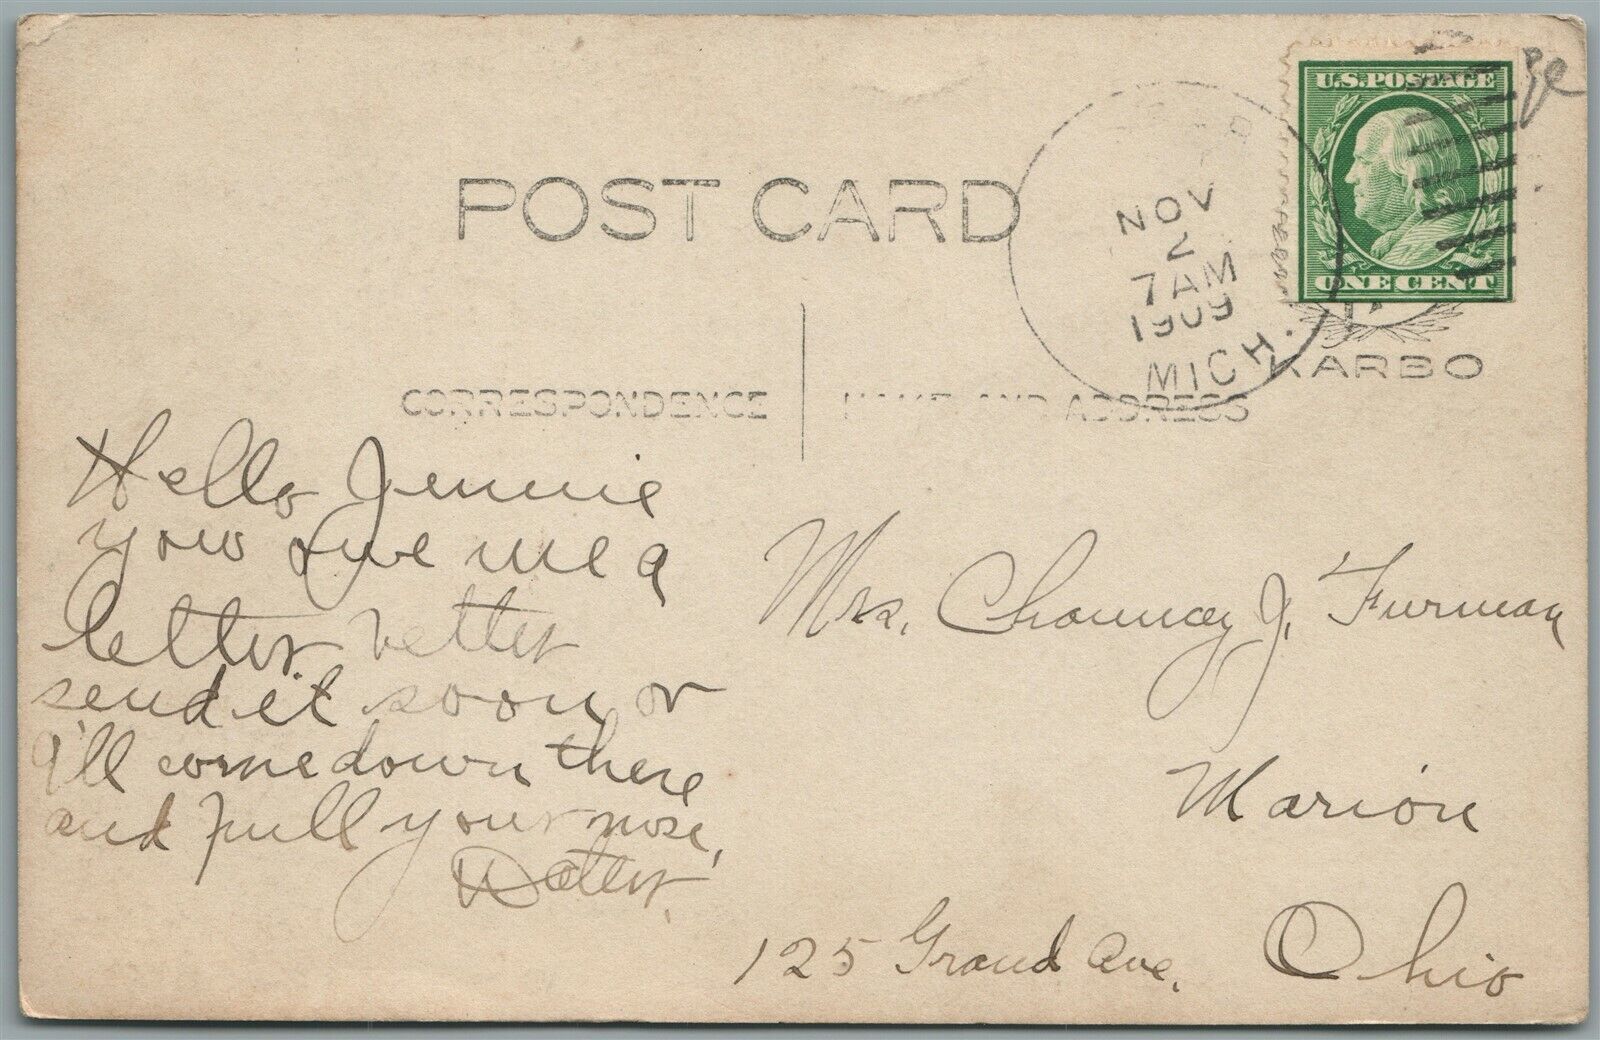 U.S.POSTAGE
ONE CENT
POST CARD
NOV
2
7 AM
1909
MICH.
KARBO
CORRESPONDENCE
NAME AND ADDRESS
Hello Jennie
you owe me a
letter better
send it soon or
I'll come down there
and pull your nose,
Mrs. Chauncey J. Furman
Marion
125 Grand Ave. Ohio